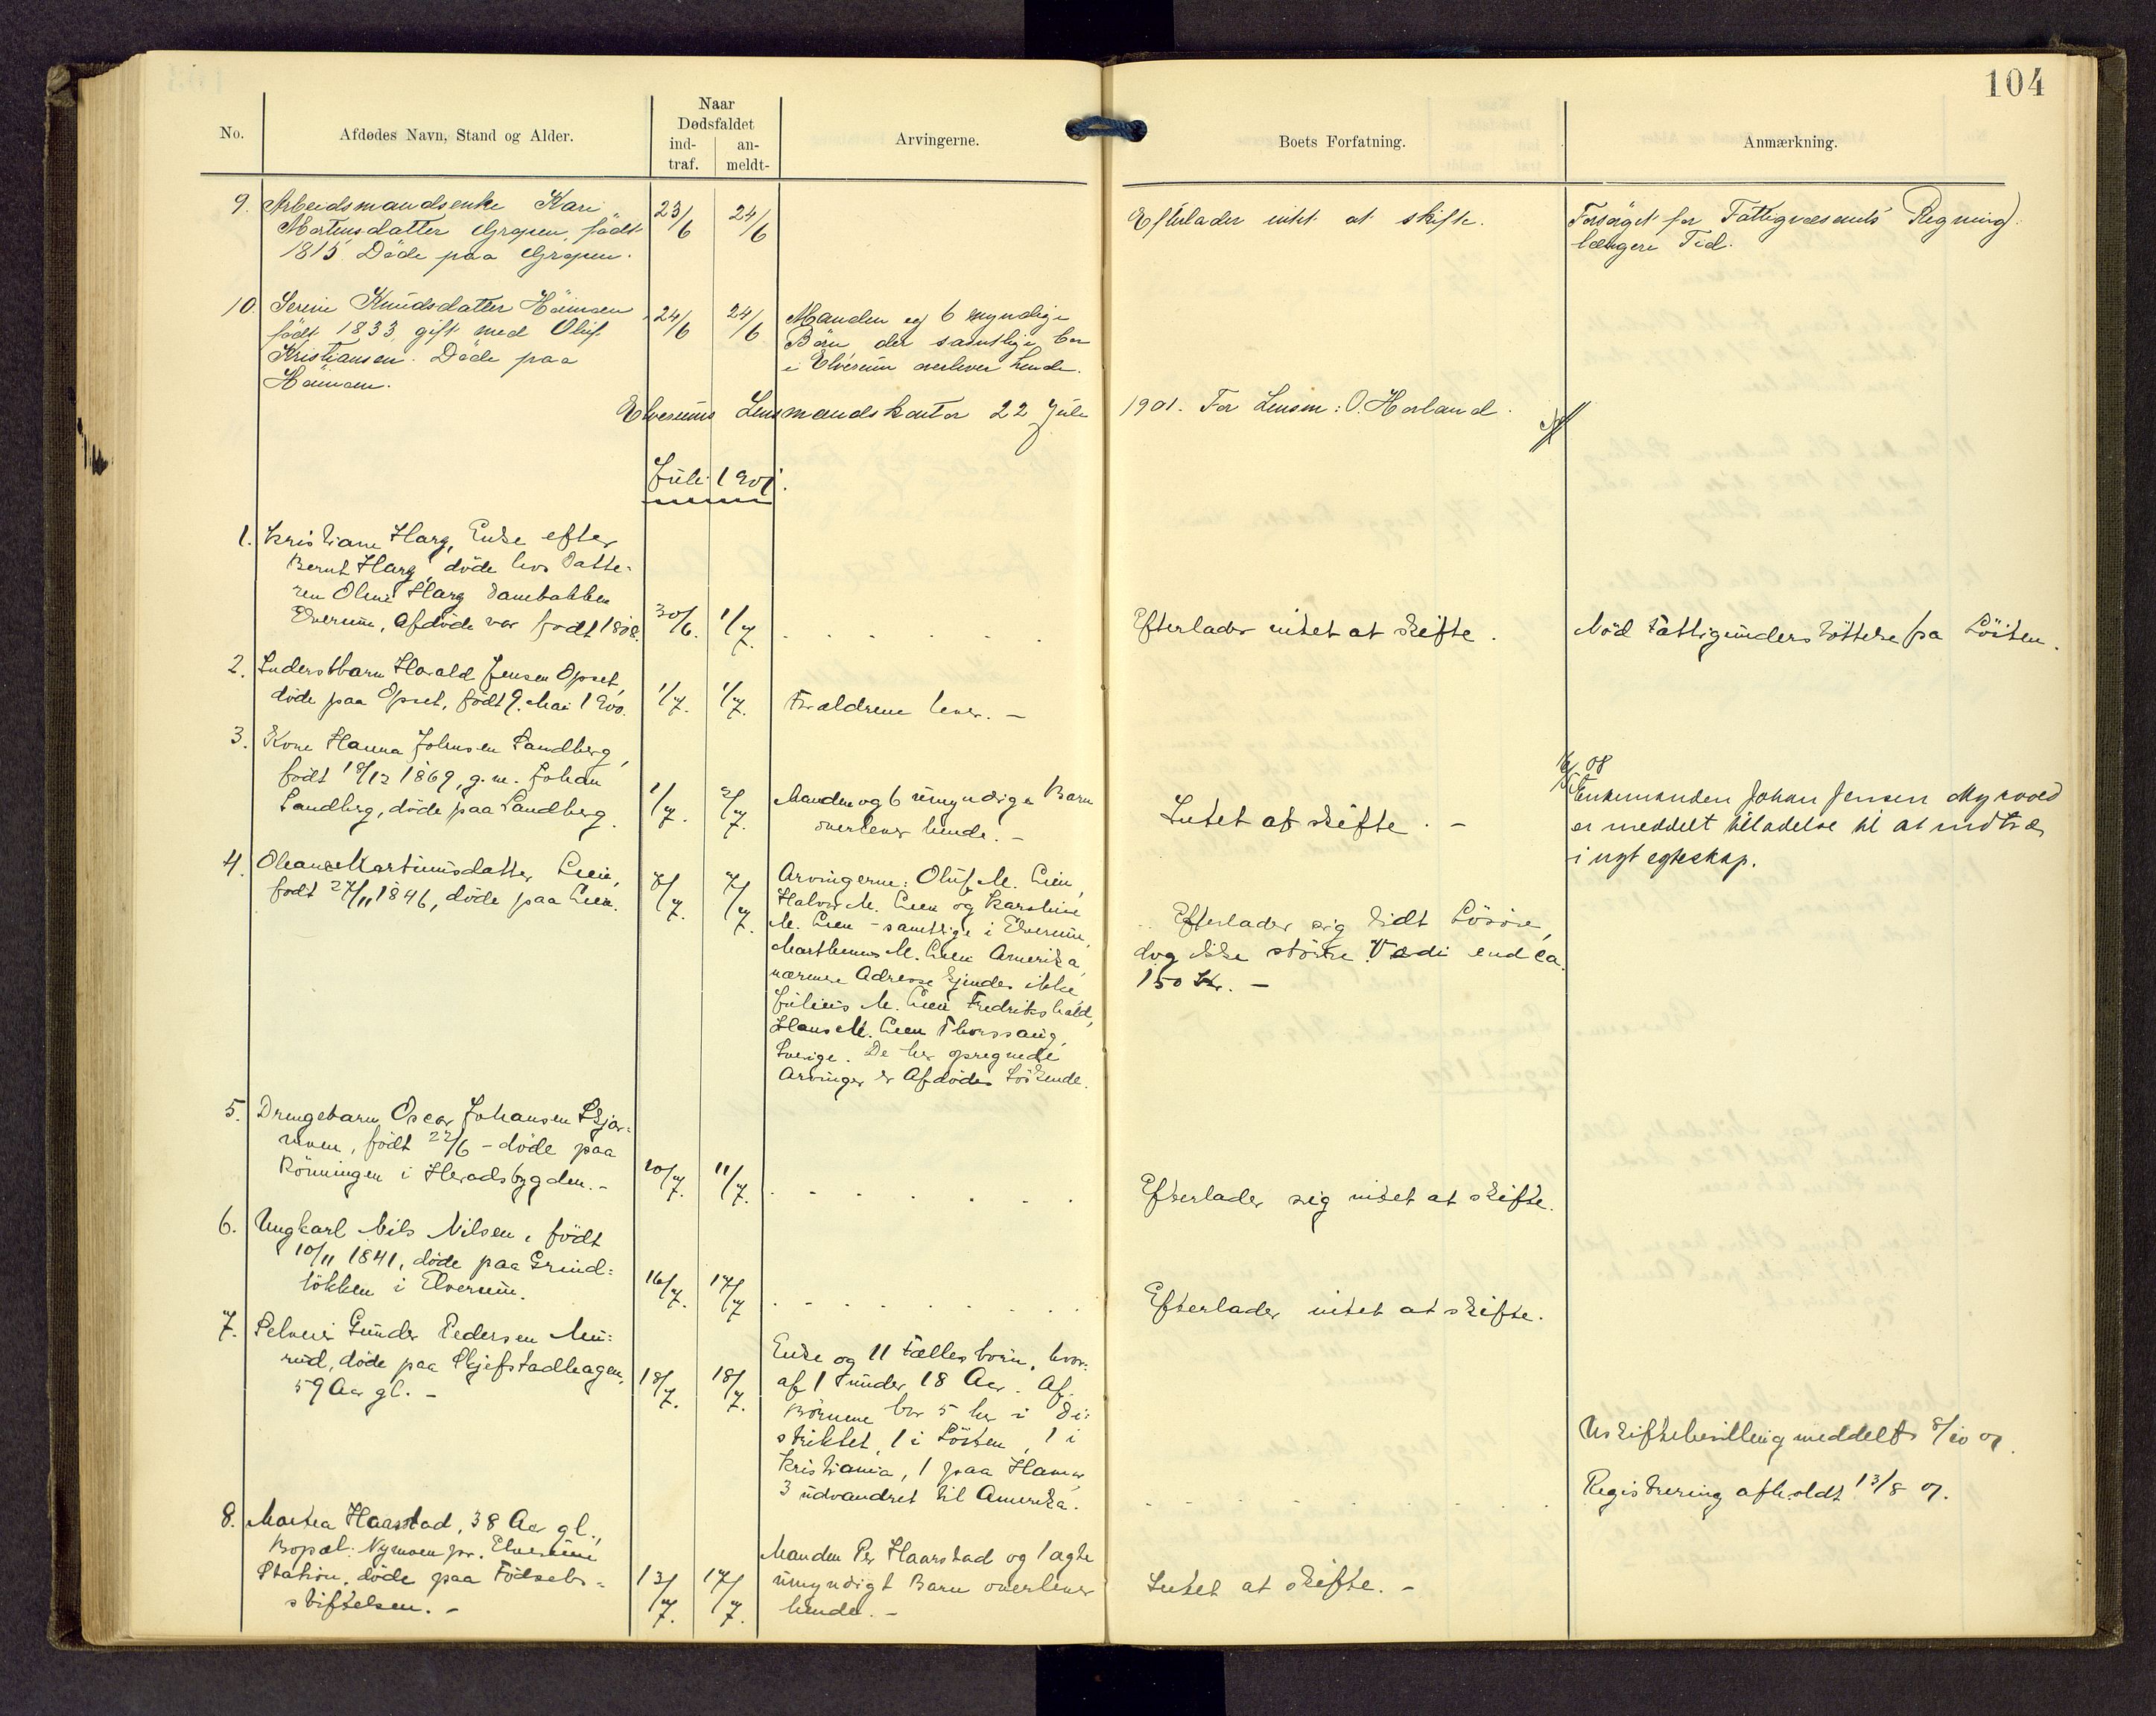 104
No.
Afdødes Navn, Stand og Alder.
Naar
Dødsfaldet
ind-
traf.
an-
meldt-
Arvingerne.
Boets Forfatning.
Anmærkning.
9. Arbeidsmandsenke Kari
Mortensdatter Grøpen, født
1815. Døde paa Grøpen.
23/6 24/6
Efterlader intet at skifte.
Forsørget for Fattigvæsenets Regning
længere Tid.
10. Serine Knudsdatter
født 1833, gift med Oluf
Kristiansen. Døde paa
24/6 24/6
Manden og 6 myndige
Børn der samtlige bor
i Elverum overlever hende.
Elverums Lensmandskontor 22 Juli 1901. For Lensm: O. Horland.
Juli 1901.
1. Kristiane Harg, Enke efter
Bernt Harg, døde hos Datte-
ren Oline Harg Dambakken
Elverum, Afdøde var født 1808.
30/6. 1/7.
Efterlader intet at skifte.
Nød Fattigunderstøttelse fra Løiten.
2. Inderstbarn Harald Jensen Opset,
døde paa Opset, født 9. Mai 1900.
1/7. 1/7.
Forældrene lever. -
3. Kone Hanna Johnsen Sandberg,
født 18/12 1869, g. m. Johan
Sandberg, døde paa Sandberg.
1/7. 2/7.
Manden og 6 umyndige Barn
overlever hende. -
Intet at skifte. -
08
Enkemanden Johan Jensen Myrvold
er meddelt tilladelse til at indtræ
i nyt egteskap.
4. Oleane Martinusdatter Lien,
født 27/11 1846, døde paa Lien.
7/7. 7/7.
Arvingerne: Oluf M. Lien,
Halvor M. Lien og Karoline
M. Lien - samtlige i Elverum,
Marthinus M. Lien Amerika,
nærmere Adresse kjendes ikke
Julius M. Lien Fredrikshald,
Hans M. Lien Thorssang,
Sverige. De her opregnede
Arvinger er Afdødes Søskende.
Efterlader sig lidt Løsøre,
dog ikke større Værdi end ca.
150 Kr. -
5. Drengebarn Oscar Johansen Skjær-
moen, født 22/6 - døde paa
Rønningen i Heradsbygden. -
10/7. 11/7.
Efterlader sig intet at skifte.
6. Ungkarl Nils Nilsen, født
10/11 1841, døde paa Grind-
løkken i Elverum.
16/7. 17/7
Efterlader intet at skifte.
7. Selveier Gunder Pedersen
døde paa Skjefstadhagen,
59 Aar gl. -
18/7. 18/7.
Enke og 11 Fællesbørn, hvor-
af 1 under 18 Aar. Af
Børnene bor 5 her i Di-
striktet, 1 i Løiten, 1 i
Kristiania, 1 paa Hamar,
3 udvandret til Amerika.
Uskiftebevilling meddelt 8/10 01.
Registrering afholdt 13/8 01.
8. Martea Haarstad, 38 Aar gl.,
Bopæl: Nymoen pr. Elverum
Station, døde paa Fødsels-
stiftelsen. -
13/7. 17/7.
Manden Per Haarstad og 1 ægte
umyndigt Barn overlever
hende. -
Intet at skifte. -